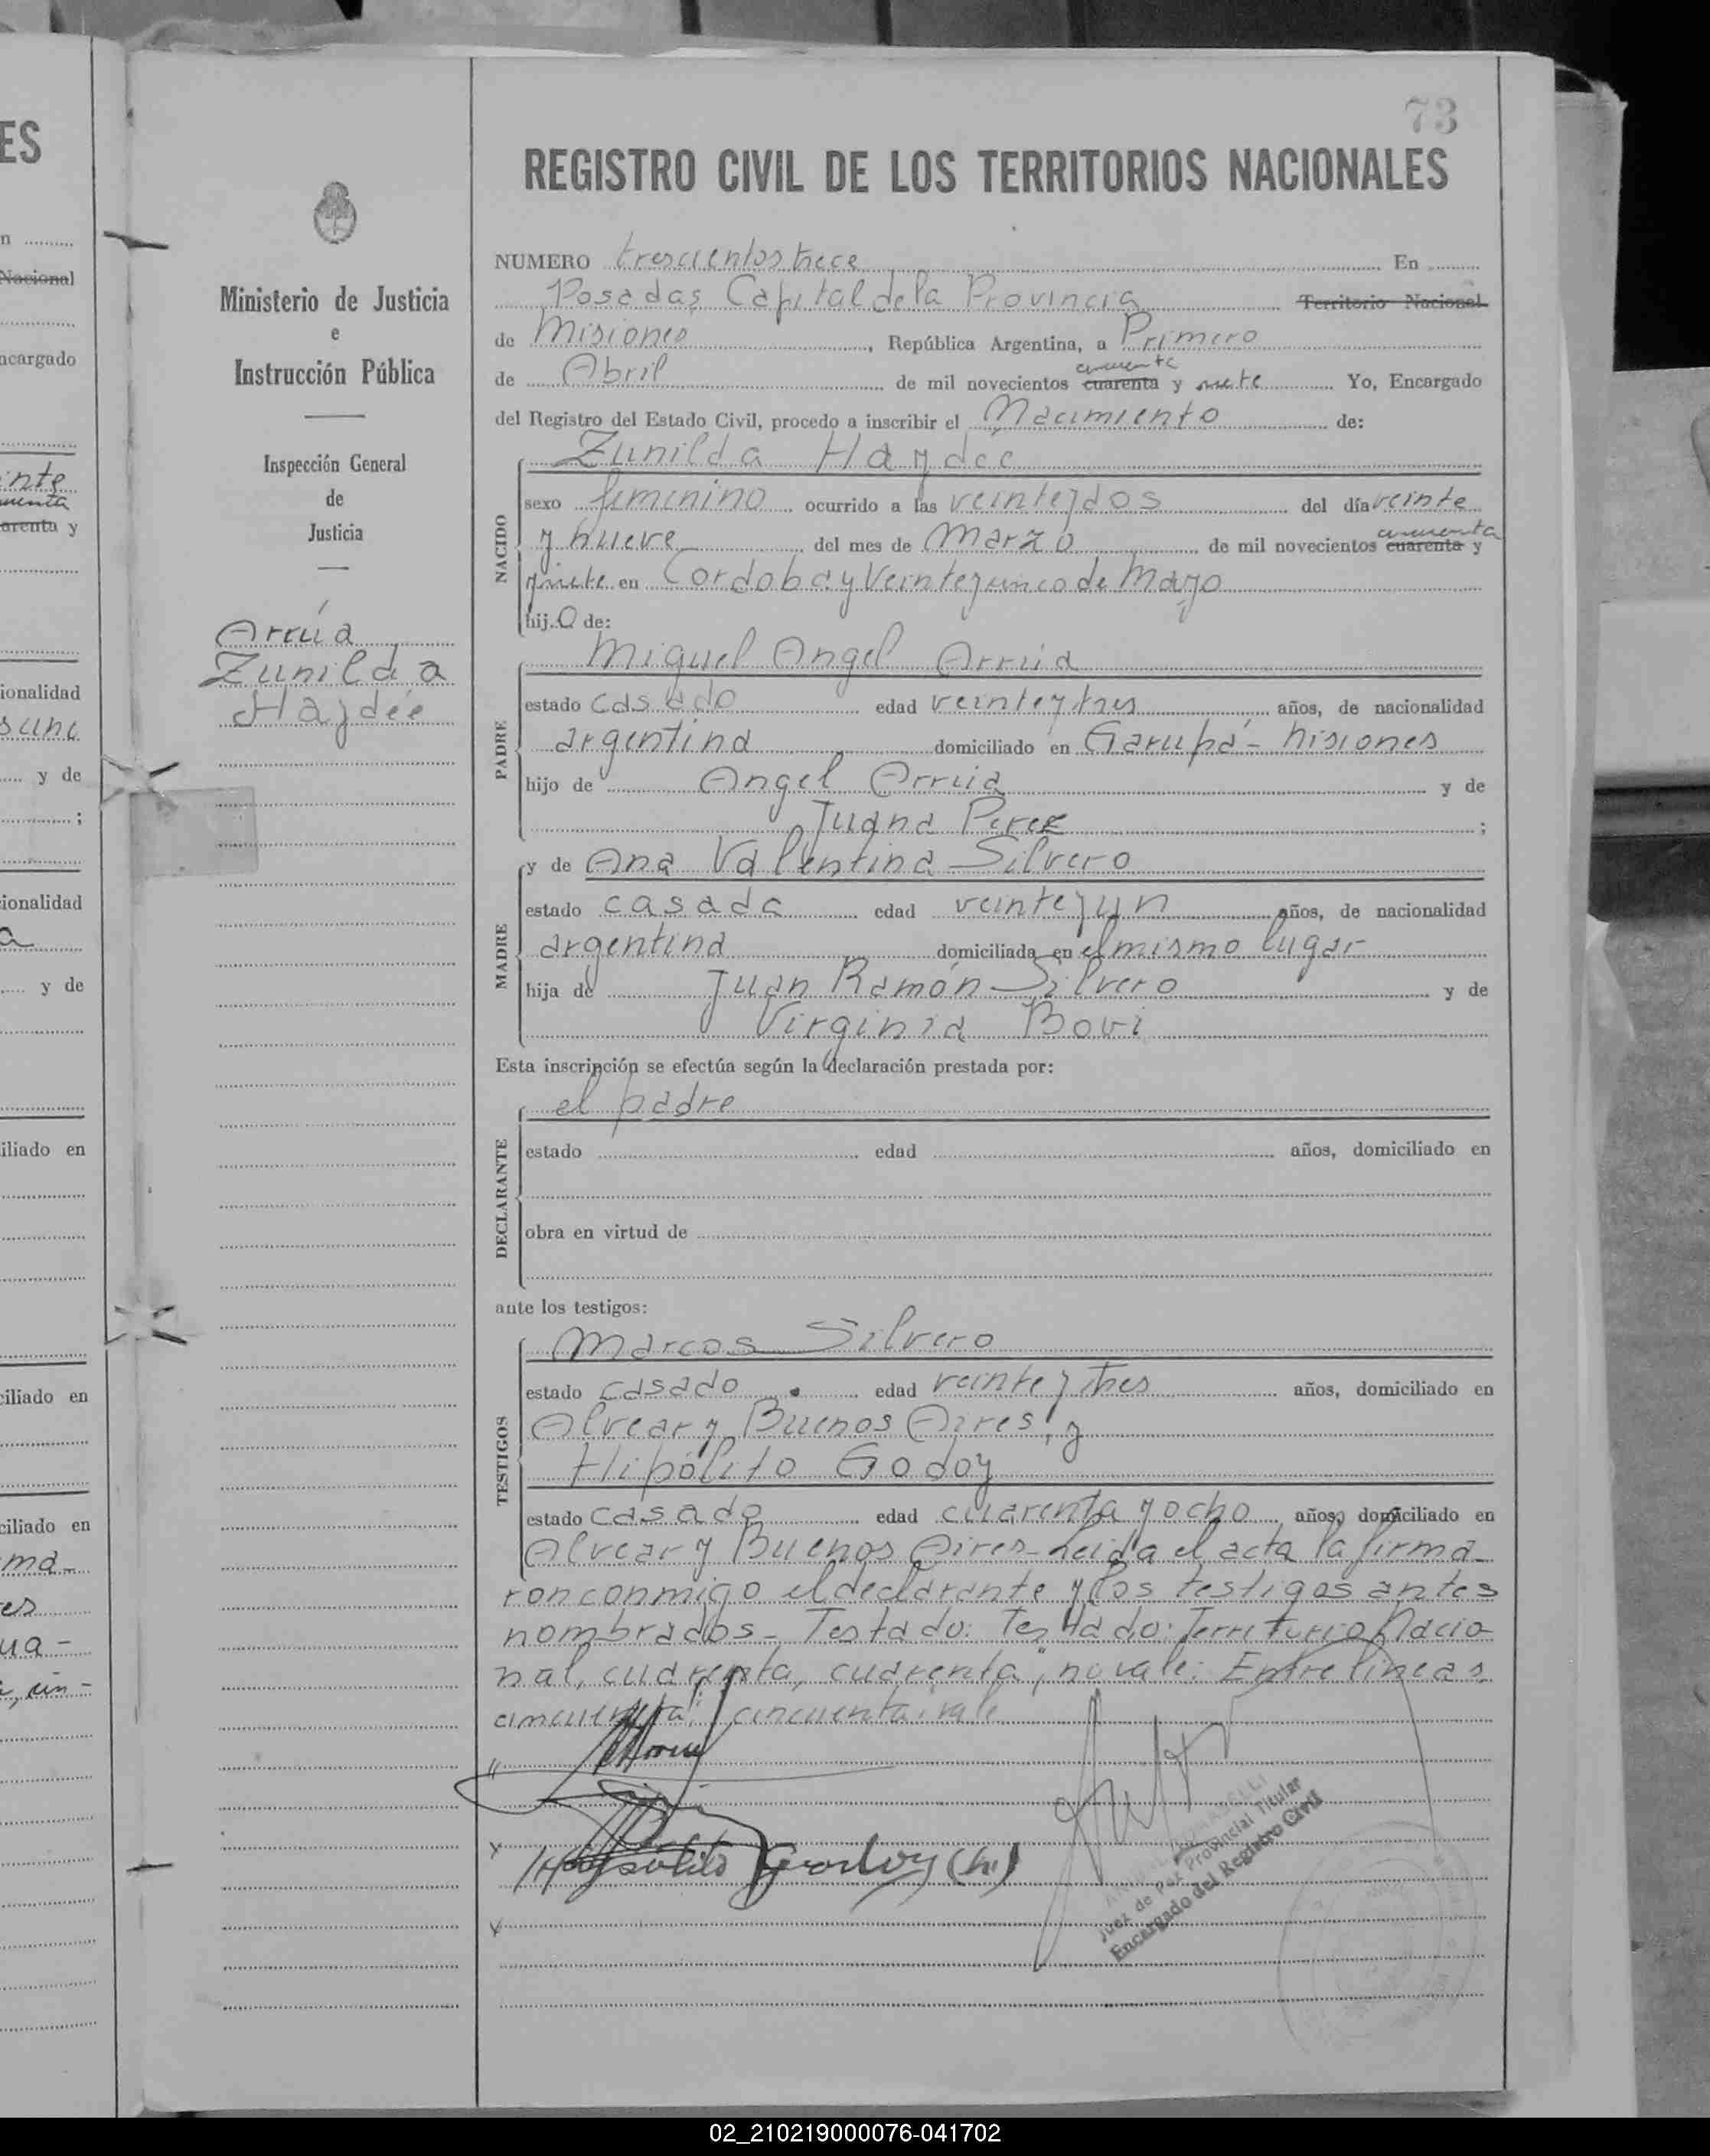 73
REGISTRO CIVIL DE LOS TERRITORIOS NACIONALES
Ministerio de Justicia
e
Instrucción Pública
Inspección General
de
Justicia
Arrúa
Zunilda
Haydée
NUMERO trescientos trece En
Posadas Capital de la Provincia Territorio Nacional
de Misiones, República Argentina, a Primero
cincuenta
de Abril de mil novecientos cuarenta y siete Yo, Encargado
del Registro del Estado Civil, procedo a inscribir el Nacimiento de:
NACIDO
Zunilda Haydée
sexo femenino ocurrido a las veinteydos del día veinte
cincuenta
y nueve del mes de Marzo de mil novecientos cuarenta y
y siete en Cordoba y Veinteycinco de Mayo
hij.a de:
PADRE
Miguel Angel Arrúa
estado casado edad veinteytres años, de nacionalidad
argentina domiciliado en Garupá - Misiones
hijo de Angel Arrúa y de
Juana Perez ;
MADRE
y de Ana Valentina Silvero
estado casada edad veinteyun años, de nacionalidad
argentina domiciliada en el mismo lugar
hija de Juan Ramón Silvero y de
Virginia Bovi
Esta inscripción se efectúa según la declaración prestada por:
DECLARANTE
el padre
estado edad años, domiciliado en
obra en virtud de
ante los testigos:
TESTIGOS
Marcos Silvero
estado casado edad veinteytres años, domiciliado en
Alvear y Buenos Aires, y
Hipólito Godoy
estado casado edad cuarenta y ocho años, domiciliado en
Alvear y Buenos Aires - Leida el acta la firma-
ron conmigo el declarante y los testigos antes
nombrados - Testado: Testado: Territorio Nacio
nal, cuarenta, cuarenta", no vale: Entre lineas
cincuenta, cincuenta: vale
Hipolito Godoy (h)
Juez de Paz Provincial Titular
Encargado del Registro Civil
ES
Nacional
ncargado
inte
uenta
arenta y
ionalidad
y de
;
ionalidad
a
y de
iliado en
ciliado en
ciliado en
ma-
es
ua-
02_210219000076-041702